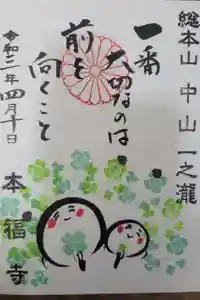 総本山 中山一之瀧
一番
大切なのは
前を
向くこと
令和二年四月十日
本福寺